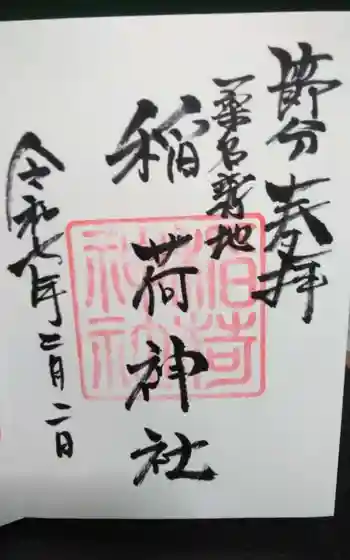 節分 奉拝
稲荷神社
令和七年二月二日
稲荷
神社